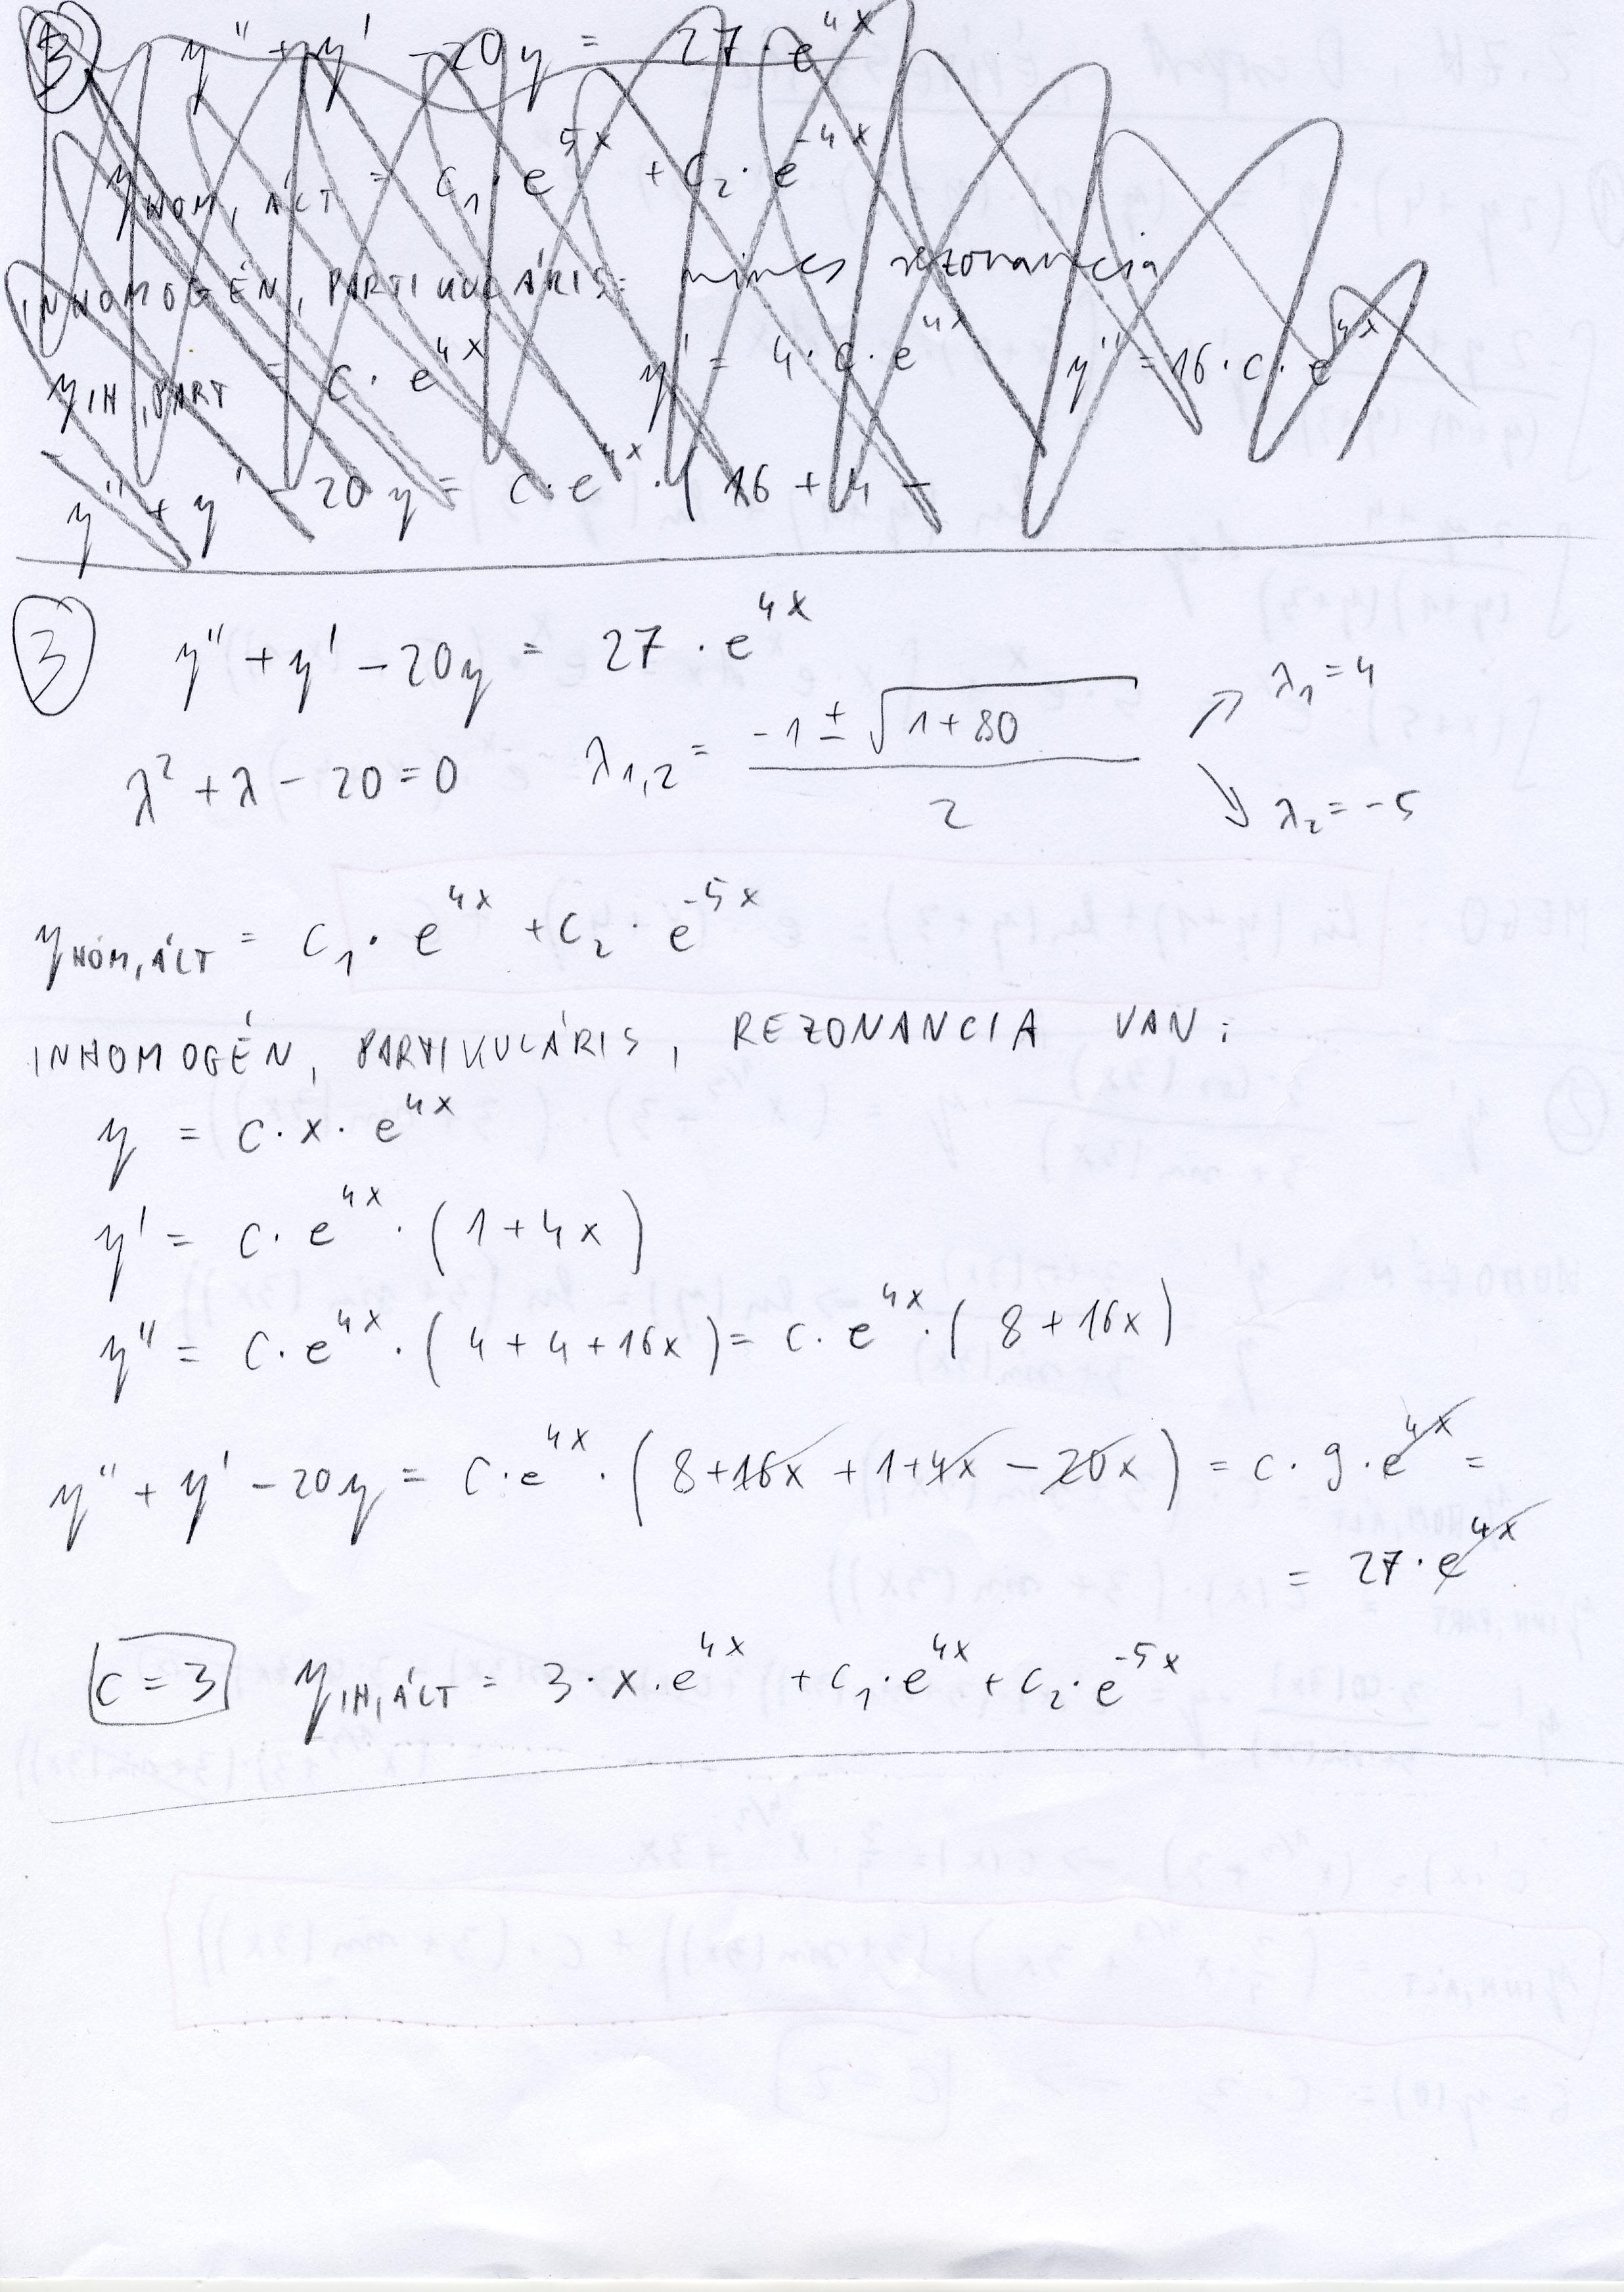 3 y'' + y' - 20y = 27 · e^4x
y HOM, ÁLT = c₁ · e^5x + c₂ · e^-4x
INHOMOGÉN, PARTIKULÁRIS: nincs rezonancia
y IH, PART = c · e^4x y' = 4 · c · e^4x y'' = 16 · c · e^4x
y'' + y' - 20y = c · e^4x · ( 16 + 4 -
3 y'' + y' - 20y = 27 · e^4x
λ² + λ - 20 = 0 λ₁,₂ = (-1 ± √(1 + 80)) / 2 ↗ λ₁ = 4
↘ λ₂ = -5
y HOM, ÁLT = c₁ · e^4x + c₂ · e^-5x
INHOMOGÉN, PARTIKULÁRIS, REZONANCIA VAN:
y = c · x · e^4x
y' = c · e^4x · ( 1 + 4x )
y'' = c · e^4x · ( 4 + 4 + 16x ) = c · e^4x · ( 8 + 16x )
y'' + y' - 20y = c · e^4x · ( 8 + 16x + 1 + 4x - 20x ) = c · 9 · e^4x =
= 27 · e^4x
c = 3 y IH, ÁLT = 3 · x · e^4x + c₁ · e^4x + c₂ · e^-5x